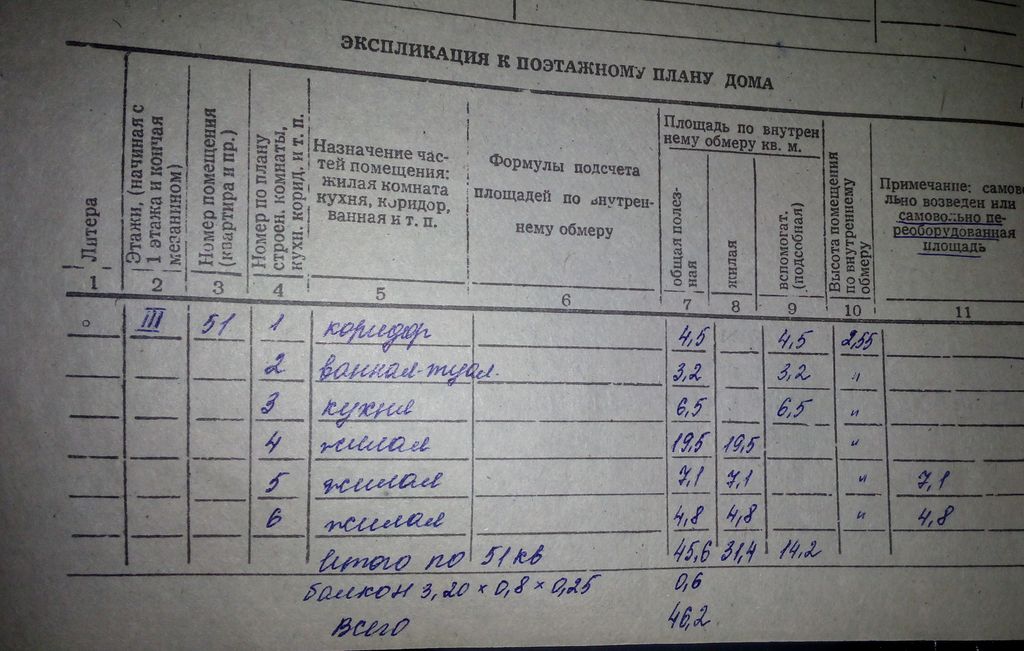 ЭКСПЛИКАЦИЯ К ПОЭТАЖНОМУ ПЛАНУ ДОМА
Литера
Этажи, (начиная с
1 этажа и кончая
мезанином)
Номер помещения
(квартира и пр.)
Номер по плану
строен. комнаты,
кухн. корид. и т. п.
Назначение час-
тей помещения:
жилая комната
кухня, коридор,
ванная и т. п.
Формулы подсчета
площадей по внутрен-
нему обмеру
Площадь по внутрен
нему обмеру кв. м.
общая полез-
ная
жилая
вспомогат.
(подсобная)
Высота помещения
по внутреннему
обмеру
Примечание: самово
льно возведен или
самовольно пе-
реоборудованная
площадь
1 2 3 4 5 6 7 8 9 10 11
III 51 1 коридор 4,5 4,5 2,55
2 ванная-туал. 3,2 3,2 "
3 кухня 6,5 6,5 "
4 жилая 19,5 19,5 "
5 жилая 7,1 7,1 " 7,1
6 жилая 4,8 4,8 " 4,8
Итого по 51 кв 45,6 31,4 14,2
балкон 3,20 × 0,8 × 0,25 0,6
Всего 46,2